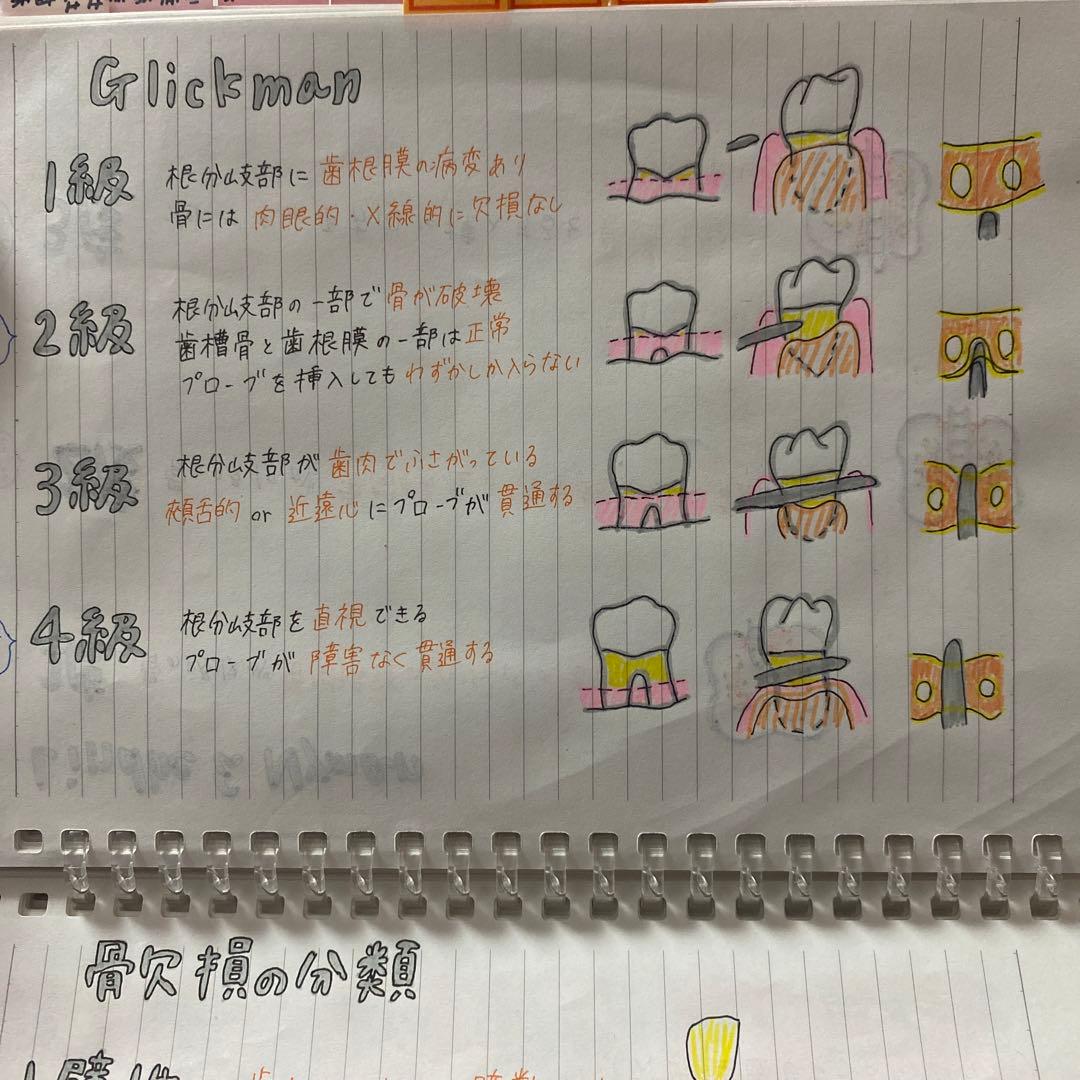 Glickman
1級
根分岐部に歯根膜の病変あり
骨には肉眼的・X線的に欠損なし
2級
根分岐部の一部で骨が破壊
歯槽骨と歯根膜の一部は正常
プローブを挿入してもわずかしか入らない
3級
根分岐部が歯肉でふさがっている
頬舌的or近遠心にプローブが貫通する
4級
根分岐部を直視できる
プローブが障害なく貫通する
骨欠損の分類